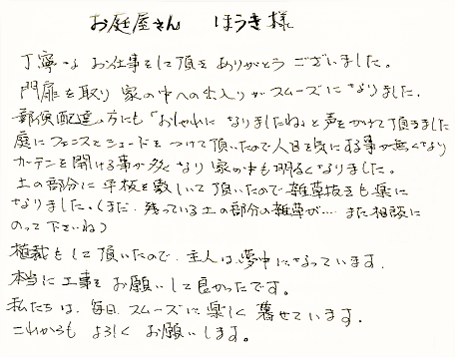 お庭屋さん　ほうき様
丁寧なお仕事をして頂き ありがとうございました。
門扉を取り 家の中への出入りがスムーズになりました。
郵便配達の方にも「おしゃれに なりましたね」と声をかけて頂きました
庭にフェンスとシェードを つけて頂いたので人目を気にする事が無くなり
カーテンを開ける事が多くなり 家の中も明るくなりました。
土の部分に 平板を敷いて頂いたので雑草抜きも楽に
なりました。(まだ、残っている土の部分の雑草が… また相談に
のって下さいね)
植栽もして頂いたので、主人は夢中になっています。
本当に工事をお願いして良かったです。
私たちは、毎日、スムーズに楽しく暮せています。
これからも よろしく お願いします。